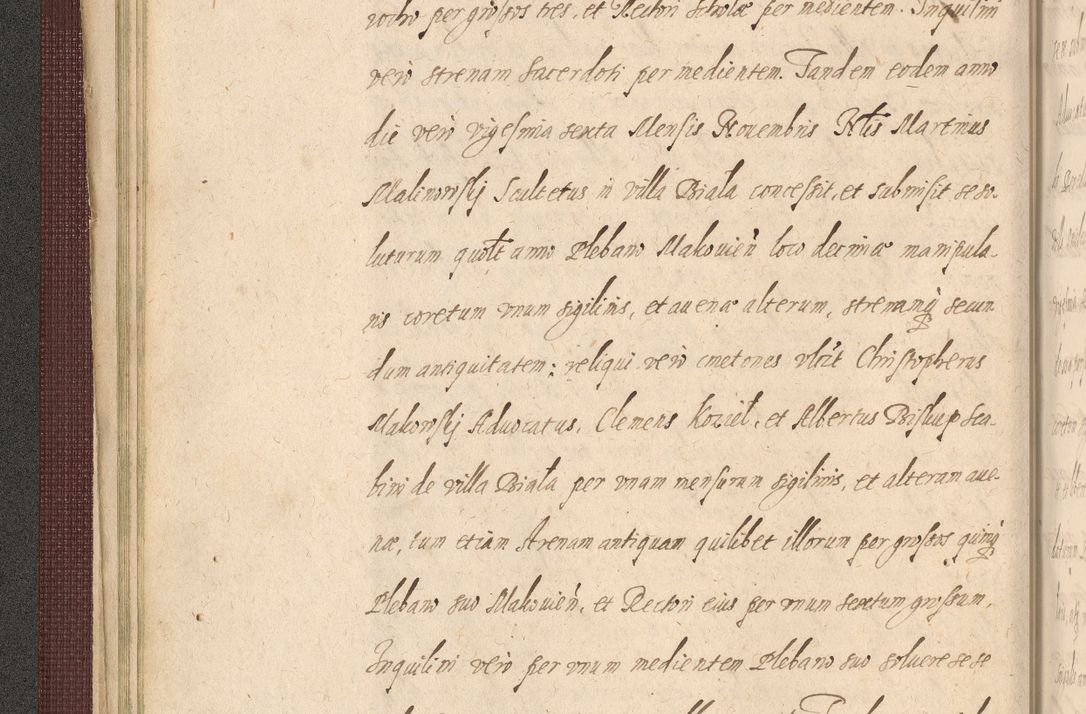 vocho per grossos tres, et Rectori Scholæ per medientem. Inquilini
vero strenam Sacerdoti per medientem. Tandem eodem anno
die vero vigesima sexta Mensis Novembris Nlis Martinus
Malinowskj Scultetus in villa Biała concessit, et submisit se so-
luturum quolt anno Plebano Makovień loco decimæ manipula-
ris coretum vnum siliginis, et avenæ alterum, strenamq secun-
dum antiquitatem; reliqui vero cmetones vlt Christopherus
Makowskj Advocatus, Clemens Kozieł, et Albertus Biskup Sca-
bini de villa Biała per vnam mensuram siliginis, et alteram ave-
næ, tum etiam strenam antiquam quilibet illorum per grossos quinq
Plebano suo Makovień, et Rectori eius per vnum sextum grossum,
Inquilini vero per vnum medientem Plebano suo solvere se se